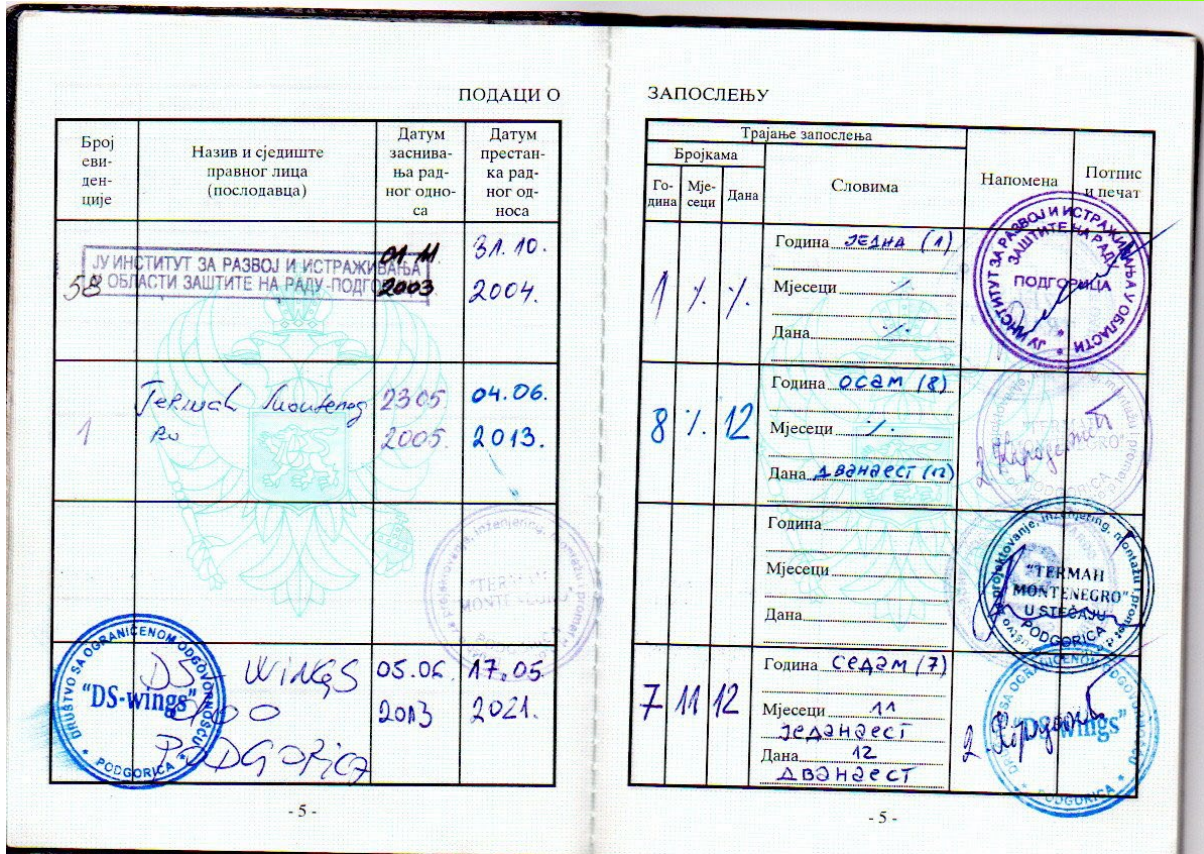 ПОДАЦИ О
Број
еви-
ден-
ције
Назив и сједиште
правног лица
(послодавца)
Датум
заснива-
ња рад-
ног одно-
са
Датум
престан-
ка рад-
ног од-
носа
58
ЈУ ИНСТИТУТ ЗА РАЗВОЈ И ИСТРАЖИВАЊА
У ОБЛАСТИ ЗАШТИТЕ НА РАДУ -ПОДГОРИЦА
01.11.
2003
31.10.
2004.
1
Montenegro
23 05.
2005.
04.06.
2013.
"TERMAH
MONTENEGRO"
PODGORICA
DS - WINGS
DOO
PODGORICA
DRUŠTVO SA OGRANIČENOM ODGOVORNOŠĆU
"DS-wings"
* PODGORICA *
05.06.
2013
17.05.
2021.
- 5 -
ЗАПОСЛЕЊУ
Трајање запослења
Бројкама
Го-
дина
Мје-
сеци
Дана
Словима
Напомена
Потпис
и печат
1 /. /.
Година ЈЕДНА (1)
Мјесеци /.
Дана /.
ЈУ ИНСТИТУТ ЗА РАЗВОЈ И ИСТРАЖИВАЊА У ОБЛАСТИ
ЗАШТИТЕ НА РАДУ
ПОДГОРИЦА
8 /. 12
Година осам (8)
Мјесеци /.
Дана дванаест (12)
"TERMAH
MONTENEGRO"
PODGORICA
Година
Мјесеци
Дана
projektovanje, inženjering, montažu i promet
"TERMAH
MONTENEGRO"
U STEČAJU
PODGORICA
7 11 12
Година седам (7)
Мјесеци 11
једанаест
Дана 12
дванаест
"DS-wings"
PODGORICA
- 5 -